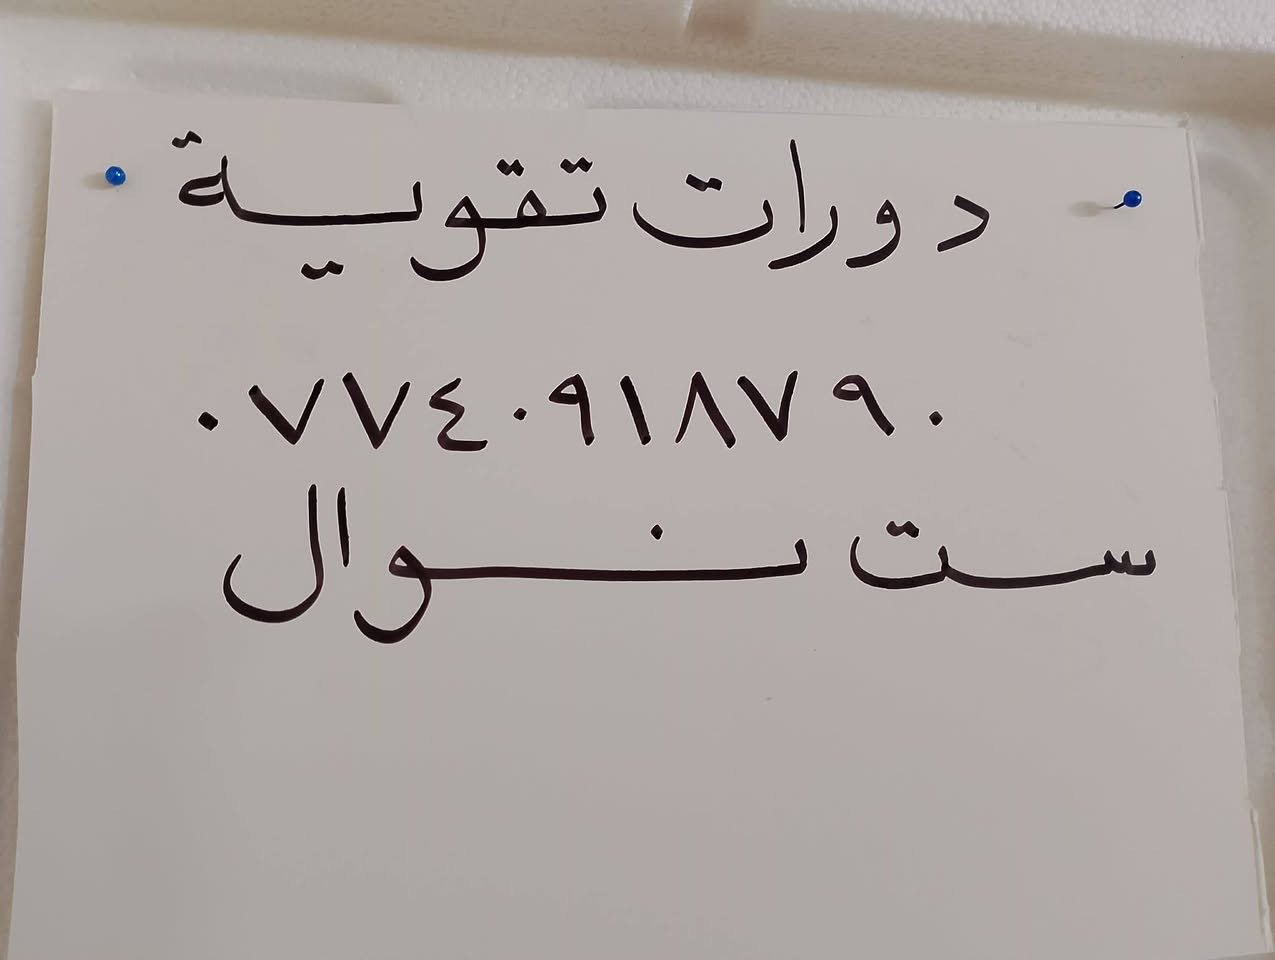 دورات تقوية
٠٧٧٤٠٩١٨٧٩٠
ست نوال